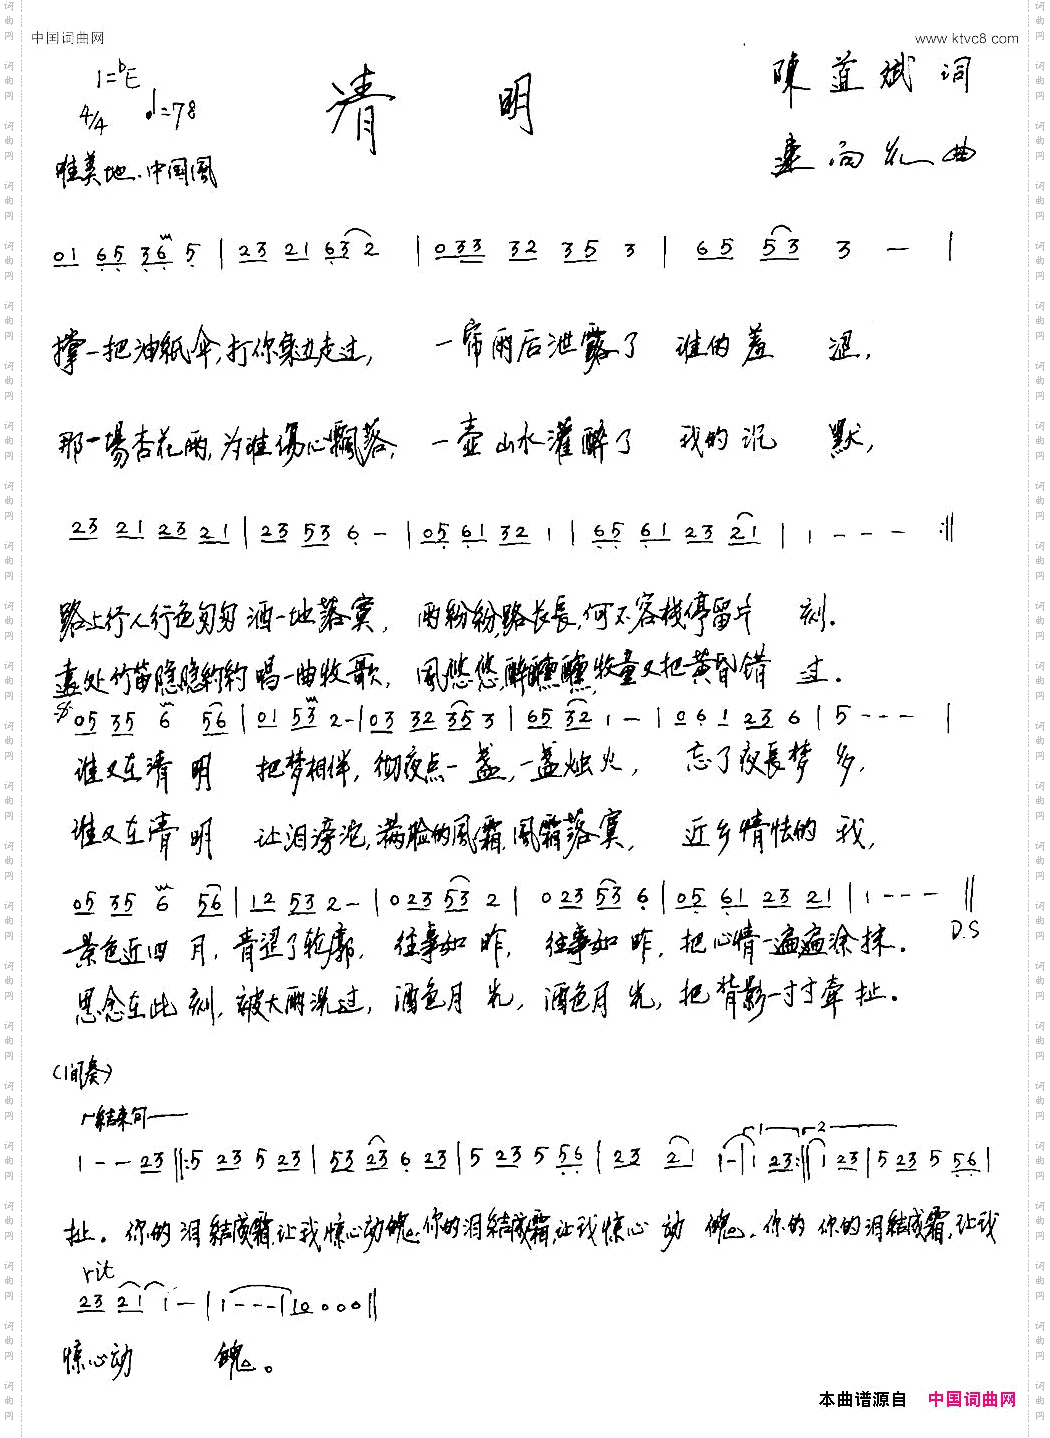 中国词曲网
www.ktvc8.com
1=♭E
4/4 ♩=78
清 明
陳益斌 词
曲
唯美地.中国風
01 65 36 5 | 23 21 63 2 | 033 32 35 3 | 65 53 3 — |
撑一把油紙伞,打你身边走过, 一帘雨后泄露了 谁的羞 涩,
那一場杏花雨,为谁傷心飄落, 一壶山水灌醉了 我的沉 默,
23 21 23 21 | 23 53 6 - | 05 61 32 1 | 65 61 23 21 | 1 - - - :||
路上行人行色匆匆洒一地落寞, 雨紛紛,路长長,何不客栈停留片 刻.
遠处竹笛隐隐約約唱一曲牧歌, 風悠悠,醉醺醺,牧童又把黄昏错 过.
05 35 6 56 | 01 53 2 - | 03 32 35 3 | 65 32 1 - | 0 6 1 23 6 | 5 - - - |
谁又在清 明 把梦相伴, 彻夜点一盏,一盏烛火, 忘了夜長梦 多,
谁又在清 明 让泪滂沱,满脸的風霜,風霜落寞, 近乡情怯的 我,
05 35 6 56 | 12 53 2 - | 0 23 53 2 | 0 23 53 6 | 05 61 23 21 | 1 - - - ||
D.S
景色近四 月,青涩了轮廓, 往事如 昨, 往事如 昨,把心情一遍遍涂抹.
思念在此 刻,被大雨洗过,酒色月 光,酒色月 光,把背影一寸寸牵 扯。
(间奏)
结束句
1 - - 23 ||: 5 23 5 23 | 53 23 6 23 | 5 23 5 56 | 23 21 1 - | 1 23 :|| 1 23 | 5 23 5 56 |
扯。你的泪结成霜,让我惊心动魄.你的泪结成霜,让我惊心 动 魄。你的 你的泪结成霜,让我
rit
23 21 1 - | 1 - - - | 10 0 0 0 ||
惊心动 魄。
本曲谱源自 中国词曲网